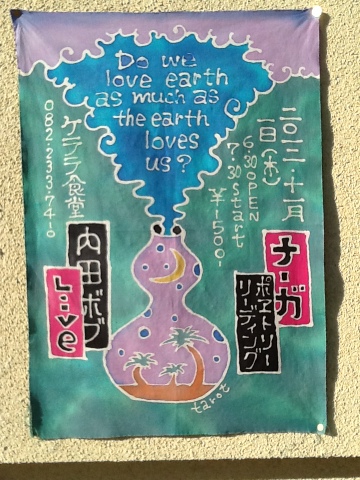 Do we
love earth
as much as
the earth
loves
us?
二〇一二・十一月
一日(木)
6:30 OPEN
7:30 start
¥1500-
ケララ食堂
082・233・7410
ナーガ
ポエトリー
リーディング
内田ボブ
Live
tarot